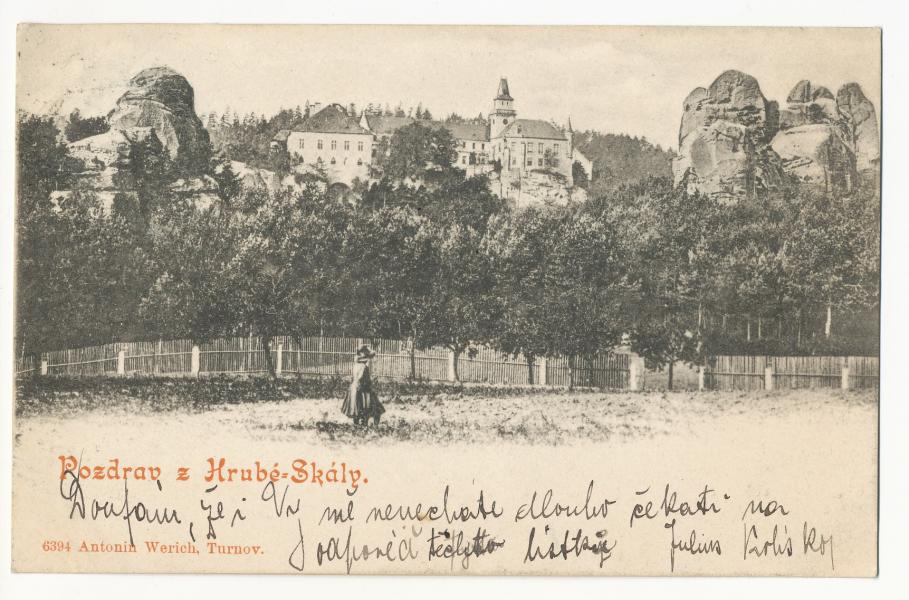 Pozdrav z Hrubé-Skály.
Doufám, že i Vy mě nenecháte dlouho čekati na
odpověď lístky Julius
6394 Antonin Werich, Turnov.